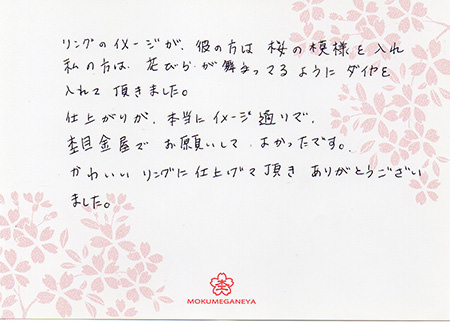 リングのイメージが、彼の方は 桜の模様を入れ
私の方は 花びらが舞ってるように ダイヤを
入れて頂きました。
仕上がりが、本当にイメージ通りで、
杢目金屋で お願いして よかったです。
かわいい リングに仕上げて頂き ありがとうござい
ました。
MOKUMEGANEYA